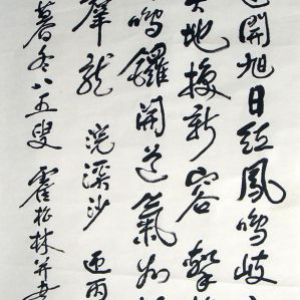 開旭日紅鳳鳴岐
地換新容
鳴鑼開道氣如
羣龍 浣溪沙 迎雨
暮冬八五叟 霍松林并書